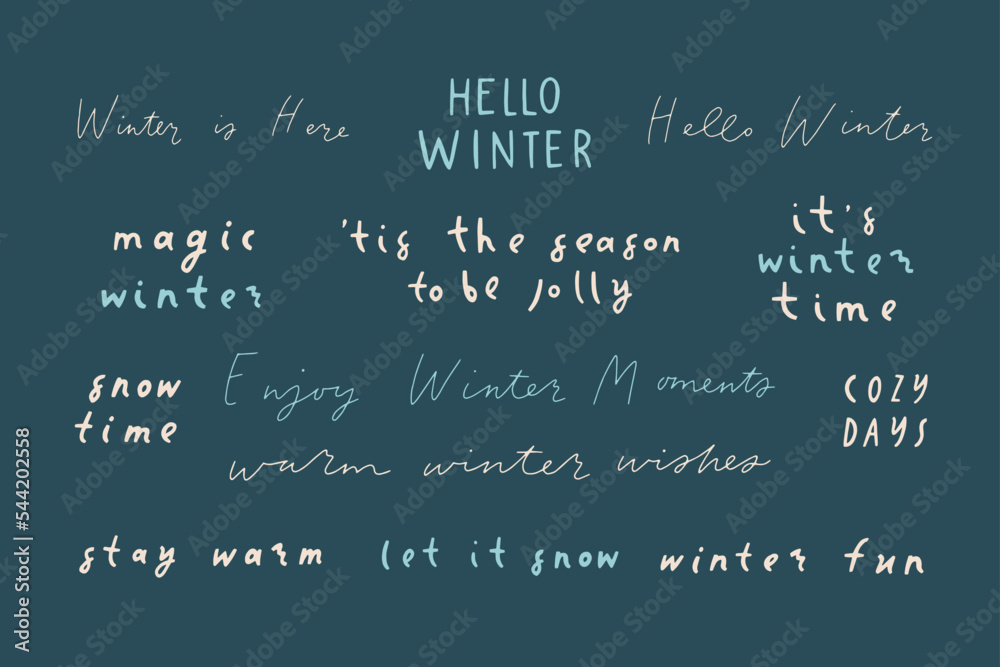 Winter is Here
HELLO
WINTER
Hello Winter
magic
winter
'tis the season
to be jolly
it's
winter
time
snow
time
Enjoy Winter Moments
warm winter wishes
COZY
DAYS
stay warm
let it snow
winter fun
Adobe Stock | #544202558
Adobe Stock